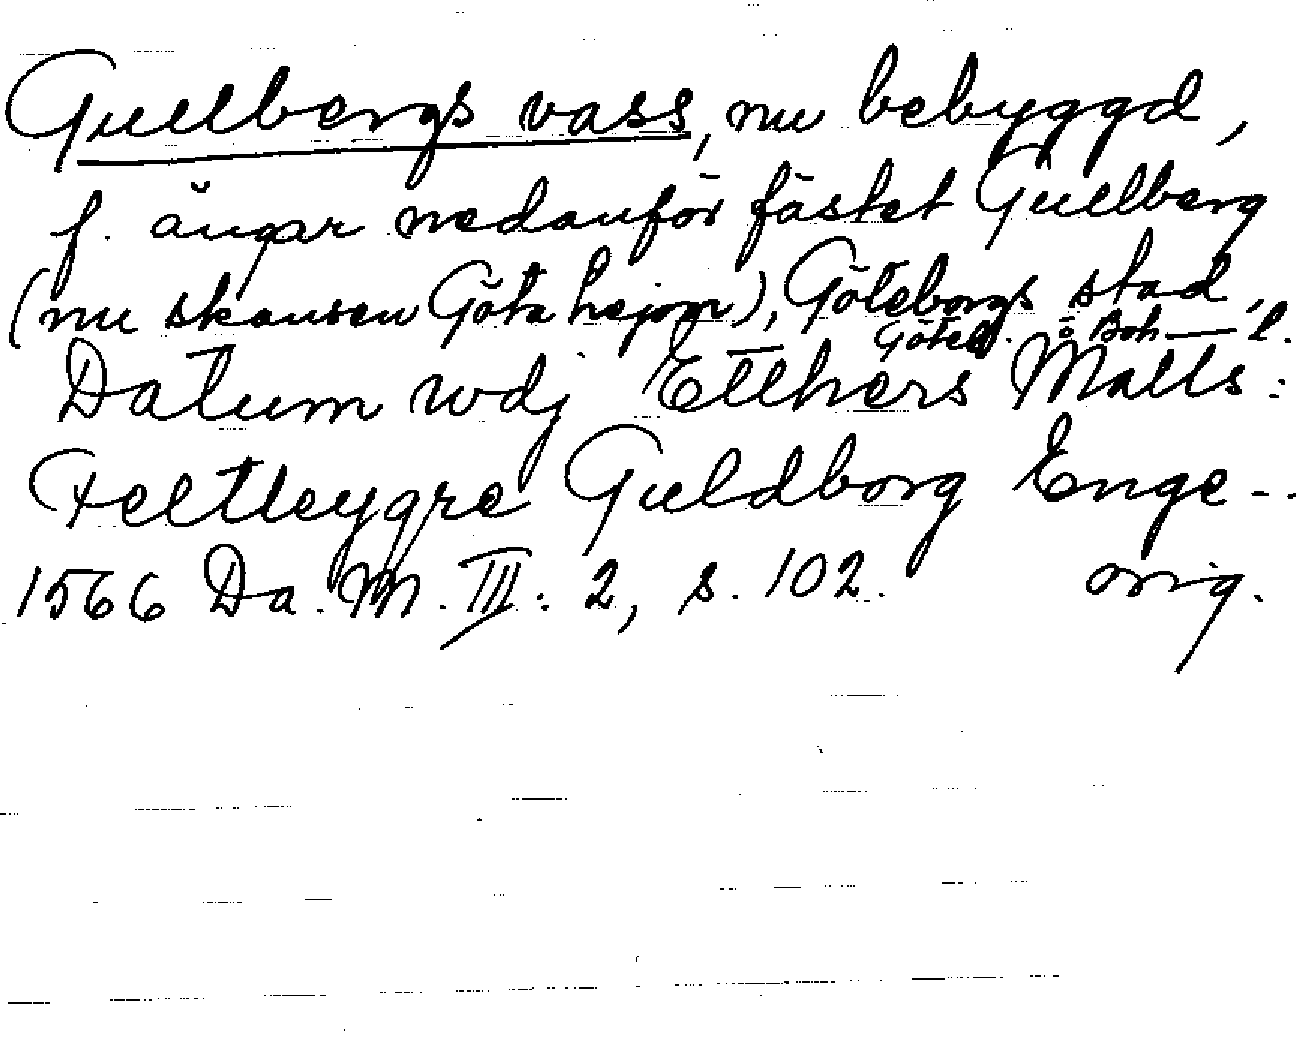 Gullbergs vass, nu bebyggd,
f. ängar nedanför fästet Gullberg
(nu skansen Göta lejon), Göteborgs stad,
Göteb. o Boh — l.
Datum wdj Ellhers Malls:
Feltleygre Guldborg Enge --
1566 Da. M. III: 2, s. 102. orig.